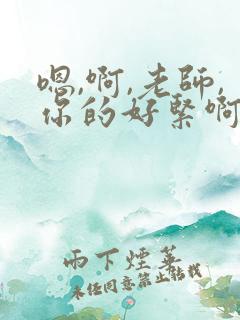 嗯,啊,老師,
你的好緊啊
雨下煙蓑
未经同意禁止转载